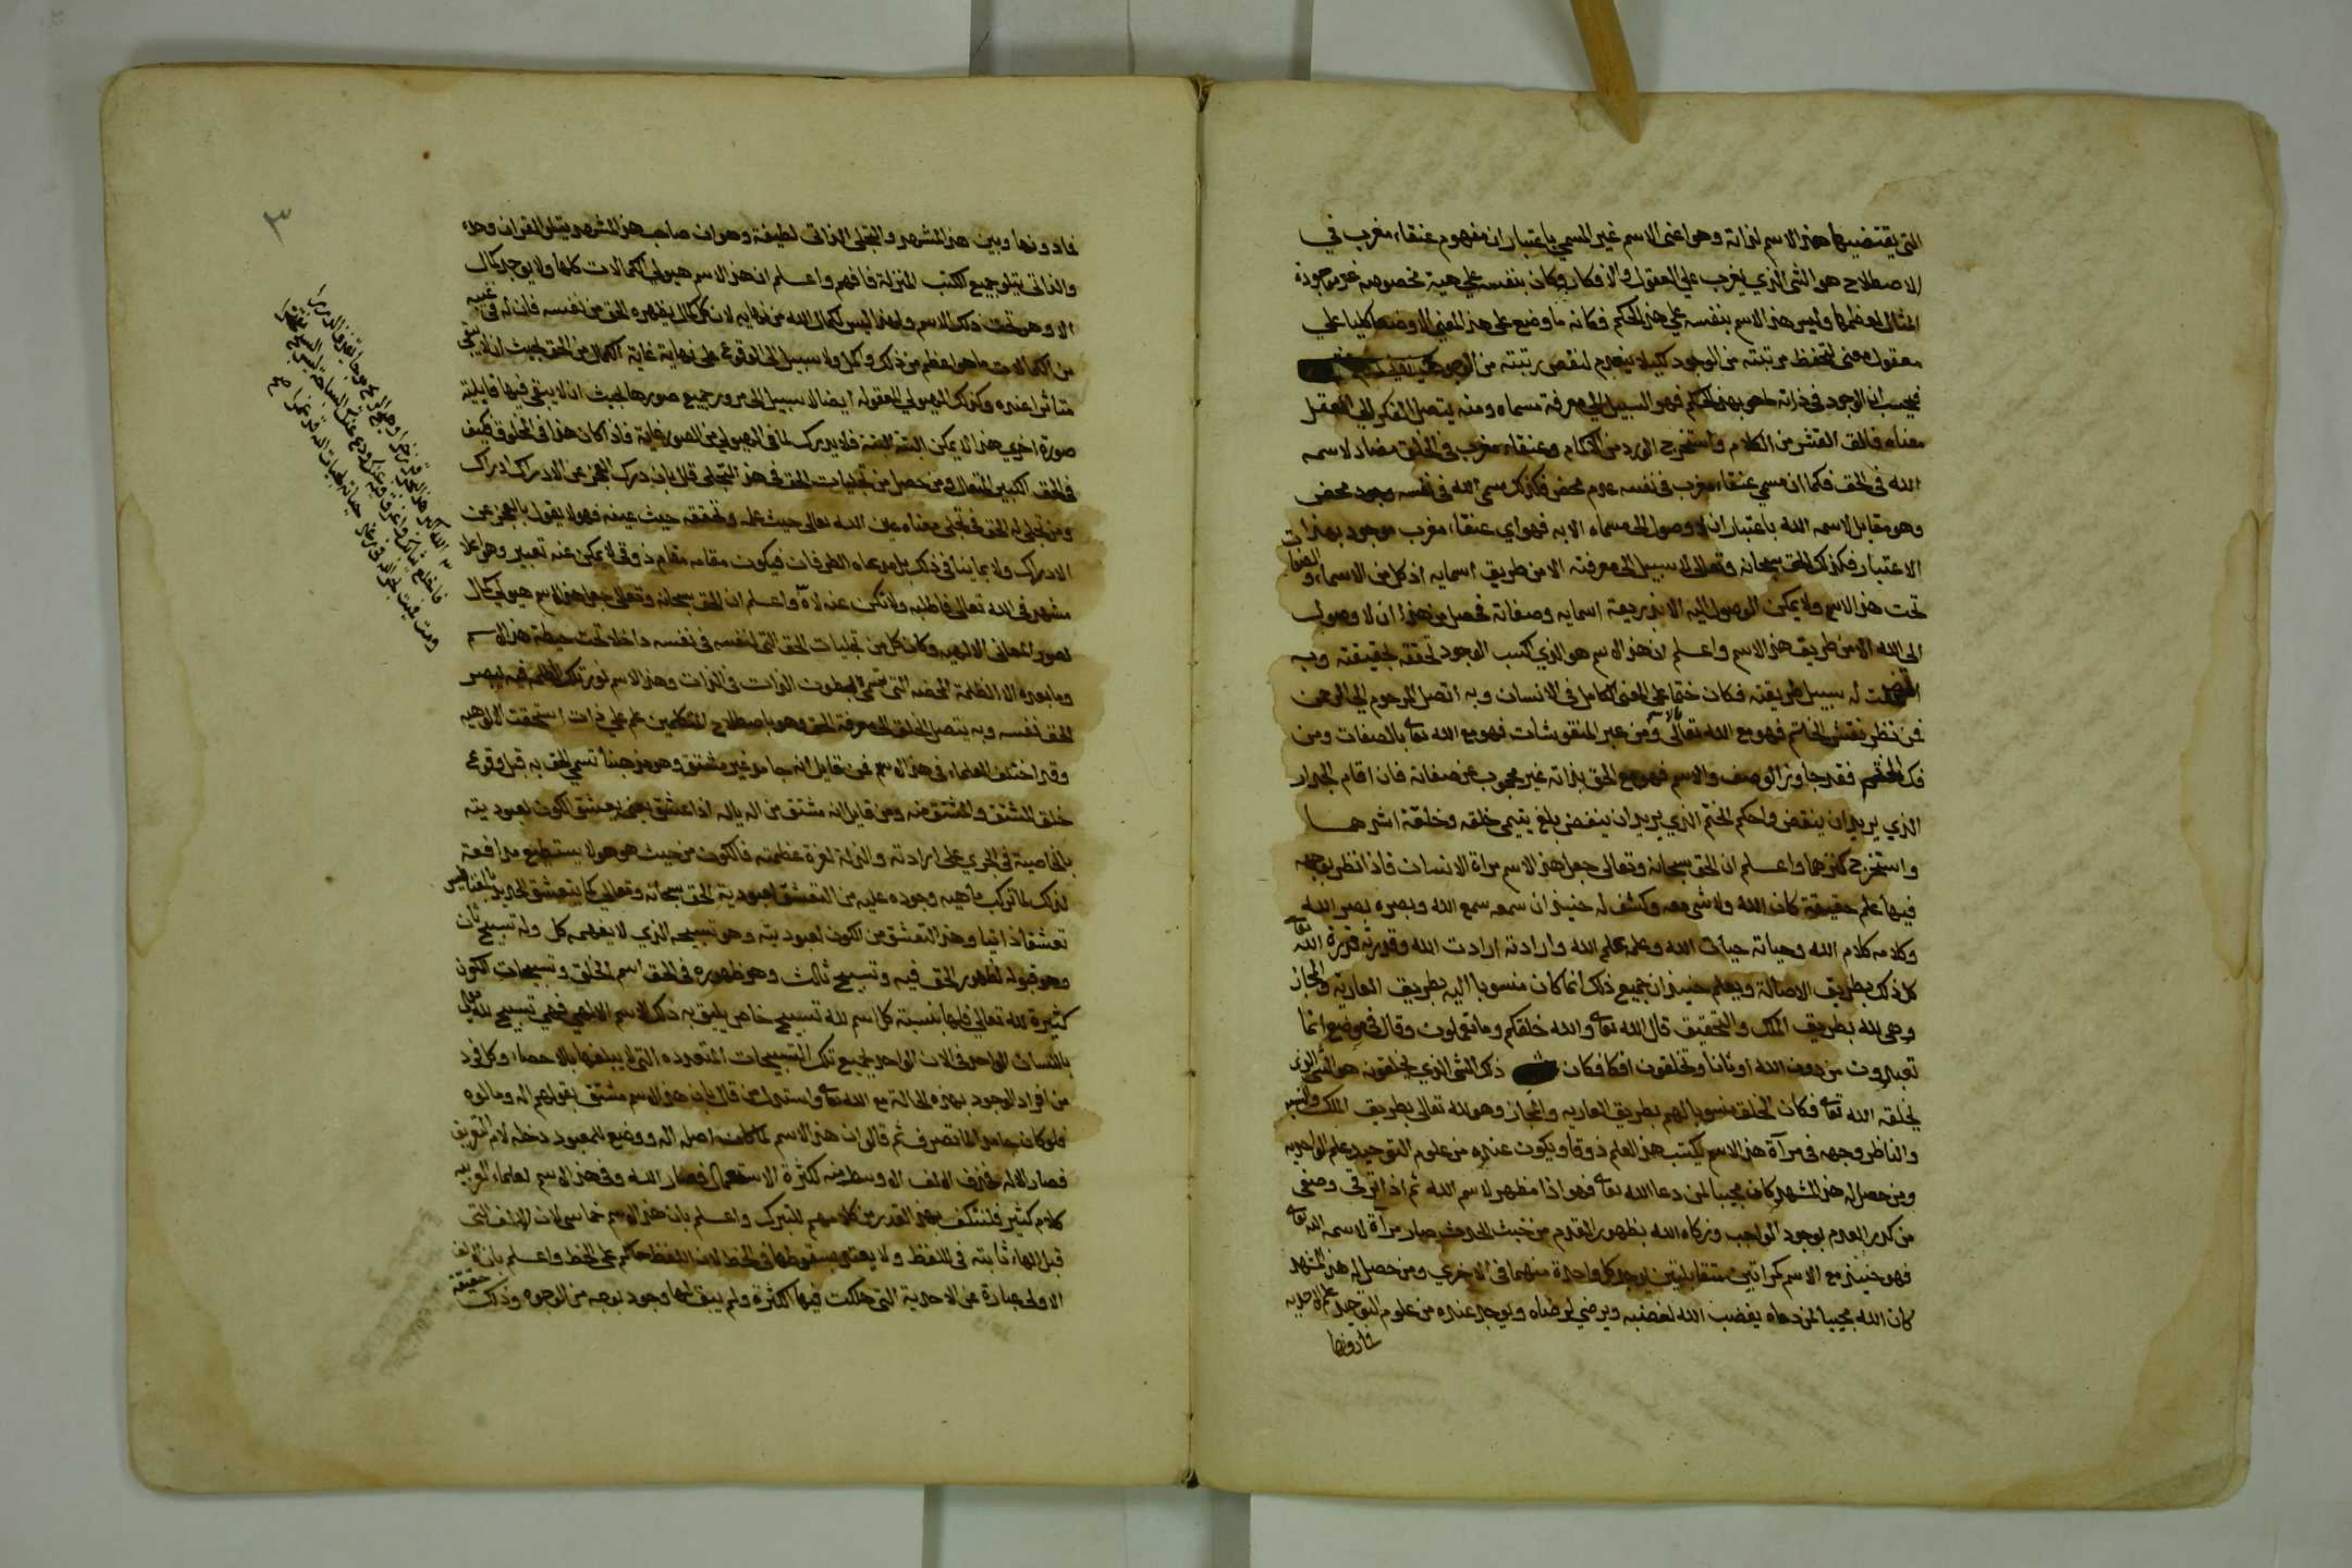 التي يقتضيها هذا الاسم لذاته وهو اعني الاسم غير المسمي باعتبار ان مفهوم عنقاء مغرب في
الاصطلاح هو الشئ الذي يغرب علي العقول والافكار وكان بنفسه علي هية مخصوصه غير موجودة
المثال لعظمها وليس هذا الاسم بنفسه علي هذا الحكم فكانه ما وضع على هذا المعني الا وضعا كليا علي
معقول معنى لتحفظ مرتبته من الوجود كيلا ينعدم لنقص رتبته من الوجود
فيحسب ان الوجود في ذاته ما هو بهذا الحكم فهو السبيل الي معرفة مسماه ومنه يتصل الفكر الي تعقل
معناه فالق القشر من الكلام واستخرج الورد من الكمام وعنقاء مغرب في الخلق مضاد لاسمه
الله في الحق فكما ان مسمي عنقاء مغرب في نفسه عدم محض فكذلك مسمى الله في نفسه وجود محض
وهو مقابل لاسمه الله باعتبار ان لا وصول الى مسماه الا به فهو اي عنقاء مغرب موجود بهذا
الاعتبار فكذلك الحق سبحانه وتعالى لا سبيل الى معرفته الا من طريق اسمايه اذ كل من الاسماء والصفات
تحت هذا الاسم ولا يمكن الوصول اليه الا بذريعة اسمايه وصفاته فحصل من هذا ان لا وصول
الى الله الا من طريق هذا الاسم واعلم ان هذا الاسم هو الذي اكسب الوجود تحققه بحقيقته وبه
اتضحت له سبيل طريقته فكان ختما على المعنى الكامل في الانسان وبه اتصل المرحوم الي الرحمن
فمن نظر نقش الخاتم فهو مع الله تعالى بالاسم ومن عبر المنقوشات فهو مع الله تعالى بالصفات ومن
فك الختم فقد جاوز الوصف والاسم فهو مع الحق بذاته غير محجوب عن صفاته فان اقام الجدار
الذي يريد ان ينقض واحكم الختم الذي يريد ان ينفض بلغ يتيمي خلقه وخلقة اشدهما
واستخرج كنزهما واعلم ان الحق سبحانه وتعالى جعل هذا الاسم مراة الانسان فاذا نظر بوجهه
فيها علم حقيقة كان الله ولا شي معه وكشف له حينيذ ان سمعه سمع الله وبصره بصر الله
وكلامه كلام الله وحياته حيات الله وعلمه علم الله وارادته ارادت الله وقدرته قدرة الله تعالى
كل ذلك بطريق الاصالة ويعلم حينيذ ان جميع ذلك انما كان منسوبا اليه بطريق العارية والمجاز
وهي لله بطريق الملك والتحقيق قال الله تعالى والله خلقكم وما تعملون وقال في موضع انما
تعبدون من دون الله اوثانا وتخلقون افكا فكان ذلك الشئ الذي يخلقونه هو الشئ الذي
يخلقه الله تعالى فكان الخلق منسوبا لهم بطريق العاريه والمجاز وهو لله تعالى بطريق الملك والنسبه
والناظر وجهه في مرآة هذا الاسم يكتسب هذا العلم ذوقا ويكون عنده من علوم التوحيد علم الواحديه
ومن حصل له هذا المشهد كان مجيبا لمن دعا الله تعالى فهو اذا مظهر لاسم الله ثم اذا ترقى وصفى
من كدر العدم لوجود الواجب وزكاه الله بظهور القدم من خبث الحدوث صار مرآة لاسمه الله تعالى
فهو حينيذ مع الاسم كمراتين متقابلتين يوجد كل واحدة منهما في الاخري ومن حصل له هذا المشهد
كان الله مجيبا لمن دعاه يغضب الله لغضبه ويرضي لرضاه ويوجد عنده من علوم التوحيد علم الاحديه
فادونها
٣
فادونها وبين هذا المشهد والتجلى الذاتى لطيفة وهو ان صاحب هذا المشهد يتلوا القران وحده
والذاتى يتلو جميع الكتب المنزلة فافهم واعلم ان هذا الاسم هيولي الكمالات كلها ولا يوجد كمال
الا وهو تحت ذلك الاسم ولهذا ليس لكمال الله من نهايه لان كل كمال يظهره الحق من نفسه فان له في غيبه
من الكمالات ما هو اعظم من ذلك واكمل ولا سبيل الى الوقوع على نهاية غاية الكمال من الحق بحيث ان لا يبقى
متاثرا عنده وكذلك الهيولي المعقوله ايضا لا سبيل الى مرور جميع صورها بحيث ان لا يبقى فيها قابلية
صورة اخرى هذا لا يمكن البتة البتة فلا يدرك لما في الهيولي من الصور غاية فاذا كان هذا في المخلوق فكيف
في الحق الكبير المتعال ومن حصل من تجليات الحق في هذا التجلى قال بان درك العجز عن الادراك ادراك
ومن تجلى له الحق في تجلى معناه عين الله تعالى حيث علمه وتحققه حيث عينه فهو لا يقول بالعجز عن
الادراك ولا بما ينافى ذلك بل تداعاه الطرفات فيكون مقامه مقام ذوق لا يمكن عنه تعبير وهو اعلا
مشهد في الله تعالى فاطلبه ولا تكن عنه لاه واعلم ان الحق سبحانه وتعالى جعل هذا الاسم هيولي كمال
لصور المعاني الالهيه وكان كل من تجليات الحق التي لنفسه في نفسه داخلا تحت حيطة هذا الاسم
وما بعده الا الظلمة المحضه التي تسمى بطون الذات في الذات وهذا الاسم نور تلك الظلمه فيه يبصر
الحق نفسه وبه يتصل الخلق الى معرفة الحق وهو باصطلاح المتكلمين علم علي ذات استحقت الالوهيه
وقد اختلف العلماء في هذا الاسم فمن قايل انه جامد غير مشتق وهو مذهبنا لتسمي الحق به قبل وقوع
خلق المشتق والمشتق منه ومن قايل انه مشتق من اله ياله اذا عشق بمعني يعشق الكون لعبوديته
بالخاصية في الجري على ارادته والذلة لعزة عظمته فالكون من حيث هو هو لا يستطيع مدافعة
لذلك لما تركب ماهيه وجوده عليه من التعشق لعبودية الحق سبحانه وتعالى كما يتعشق الحديد بالمغناطيس
تعشقا ذاتيا وهذا التعشق من الكون لعبوديته وهو تسبيحه الذي لا يفهمه كل وله تسبيح ثان
وهو قبوله لظهور الحق فيه وتسبيح ثالث وهو ظهوره في الحق اسم الخلق وتسبيحات الكون
كثيرة لله تعالى فلها بنسبة كل اسم لله تسبيح خاص يليق به ذلك الاسم الالهي فهي تسبيح لله تعالى
باللسان الواحد في الان الواحد بجميع تلك التسبيحات المتعدده التي لا يبلغها بالاحصاء وكل فرد
من افراد الوجود بهذه الحالة مع الله تعالى واستدل من قال بان هذا الاسم مشتق بقولهم اله ومالوه
فلو كان جامدا لما تصرف ثم قالوا ان هذا الاسم لما كان اصله اله ووضع للمعبود دخله لام التعريف
فصار الاله فحذف الالف الاوسط منه لكثرة الاستعمال فصار الله وفي هذا الاسم لعلماء العربيه
كلام كثير فلنكتف بهذا القدر من كلامهم للتبرك واعلم بان هذا الاسم خماسي لان الالف التي
قبل الهاء ثابته في اللفظ ولا يعتد بسقوطها في الخط لان اللفظ حاكم على الخط واعلم بان الالف
الاولى عبارة عن الاحدية التي هلكت فيها الكثرة ولم يبق لها وجود بوجه من الوجوه وذلك حقيقة